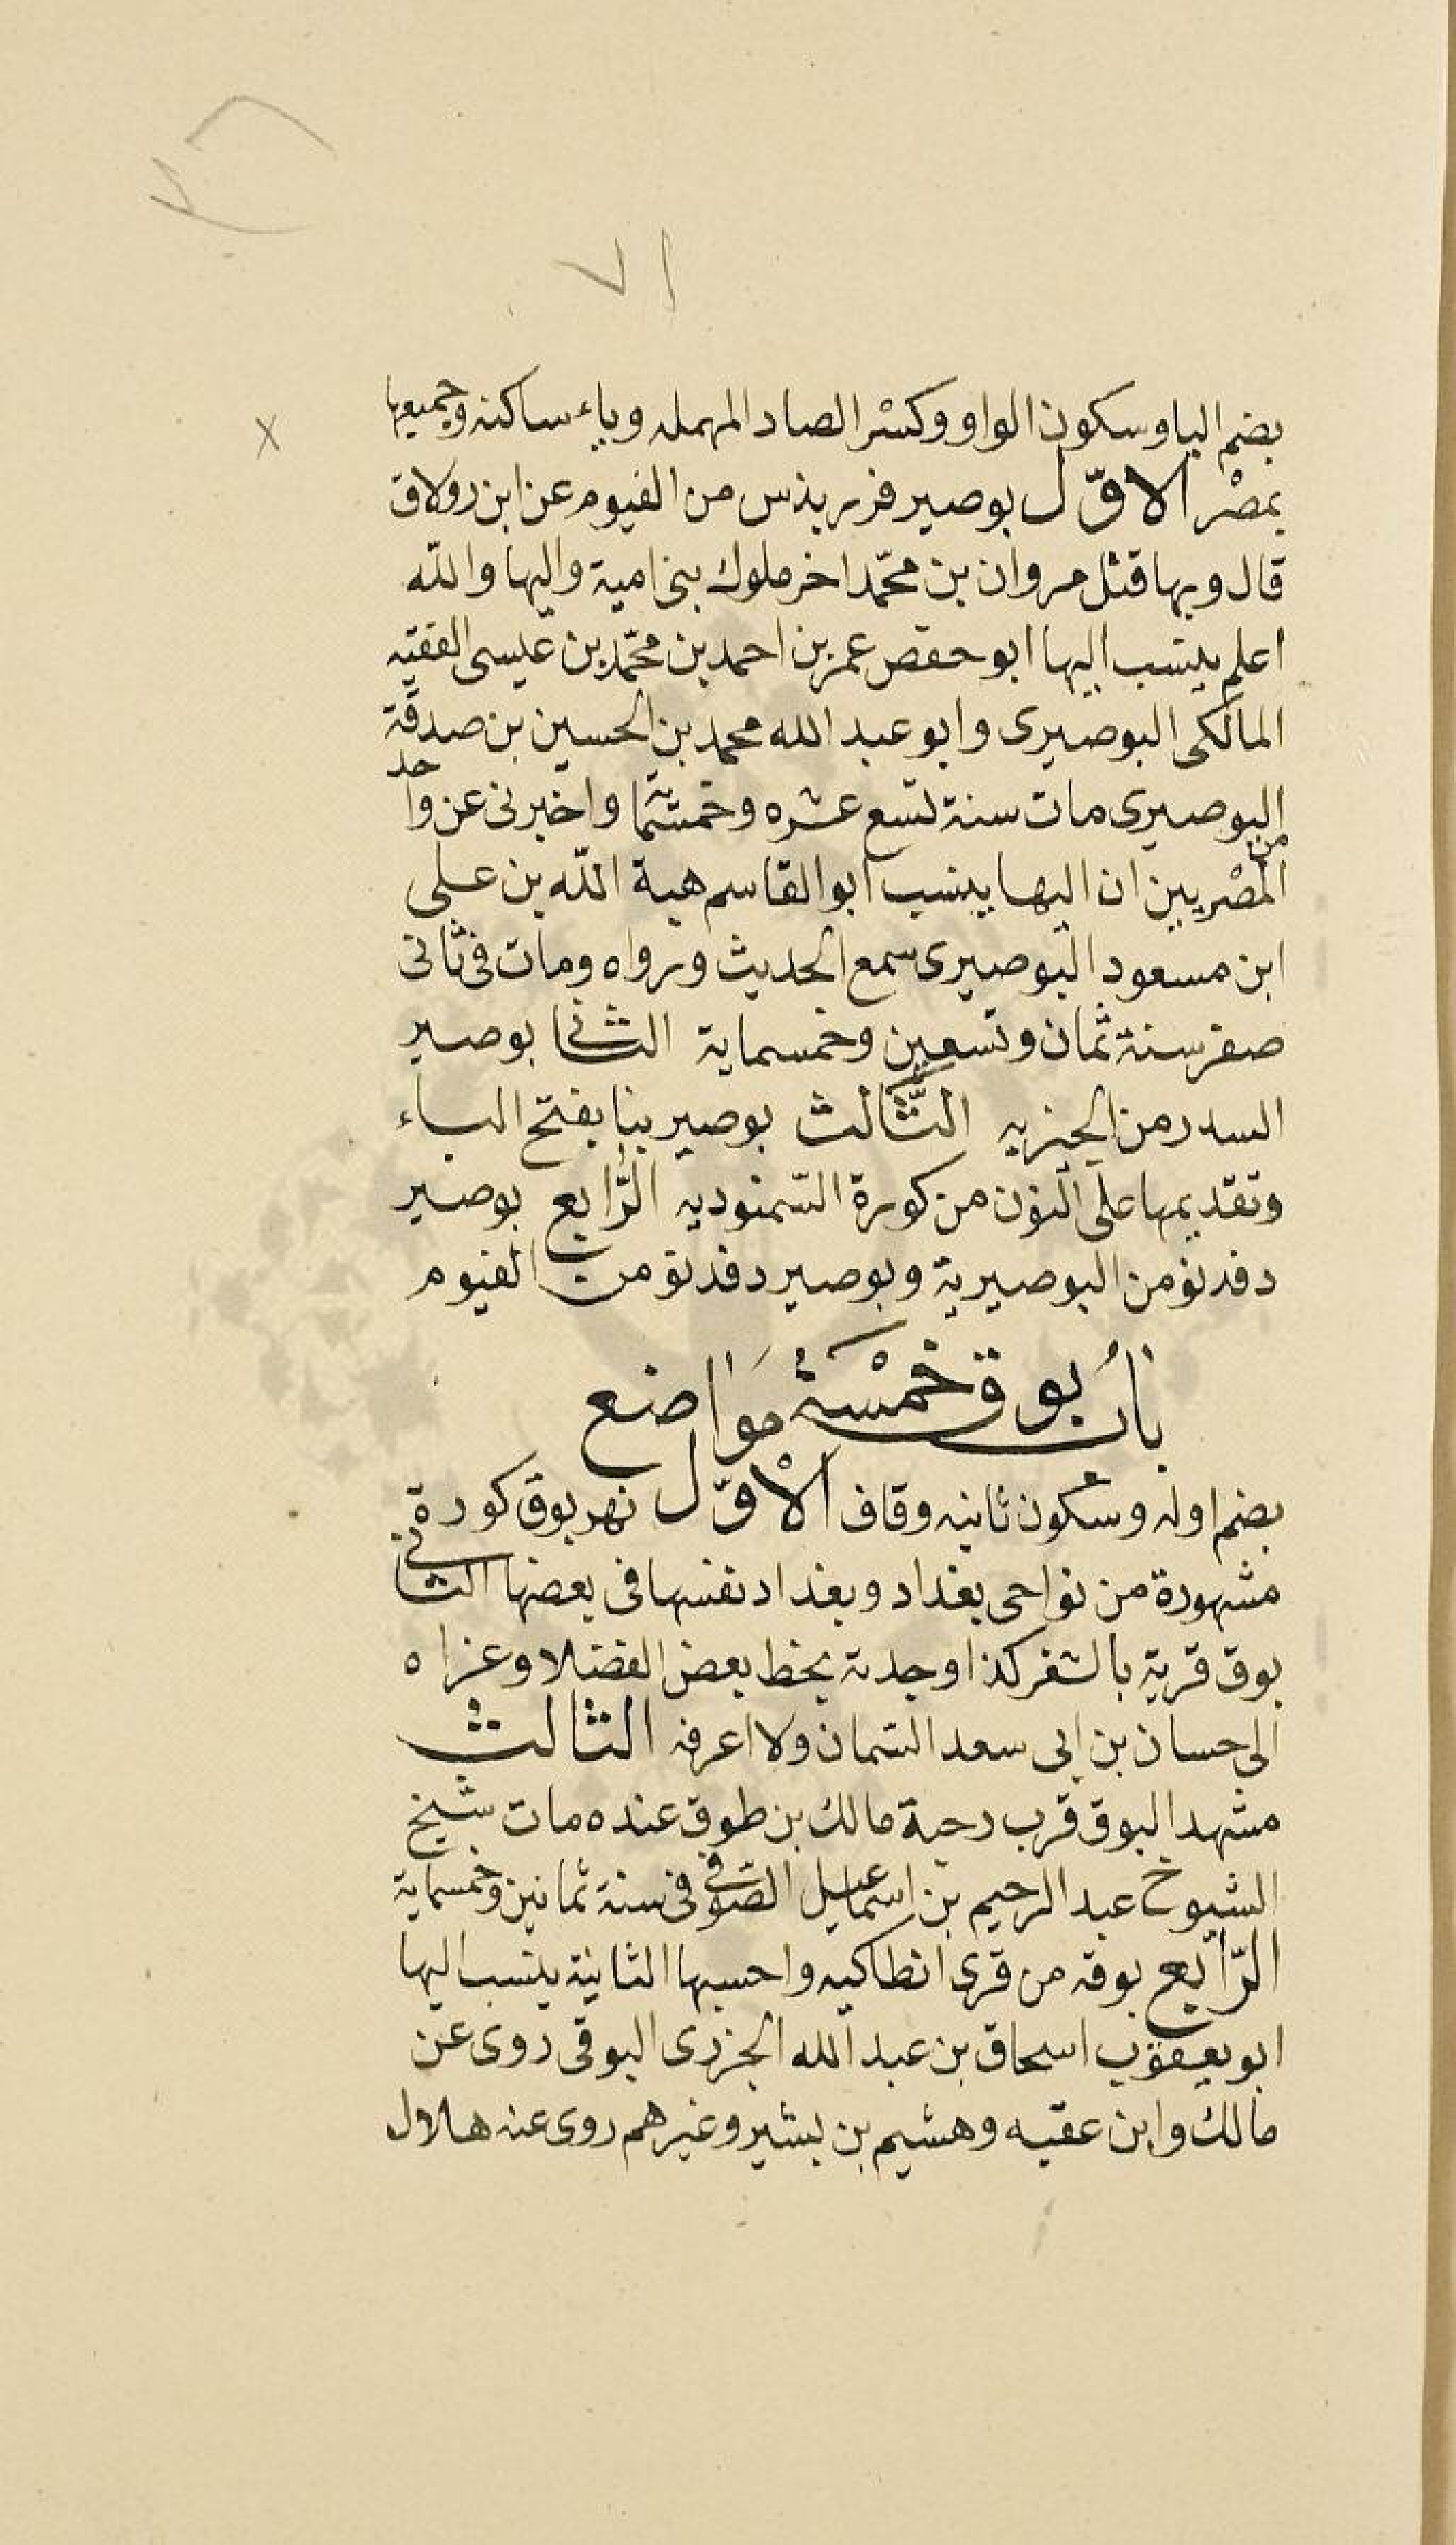 ٧١
بضم البا وسكون الواو وكسْر الصاد المهمله وياء ساكنه وجميعها
بمصْر الاوّل بوصير قريدس من الفيوم عن ابن زولاق
قال وبها قتل مروان بن محمّد اخر ملوك بنى امية واليها والله
اعلم ينتسب اليها ابو حفص عمر بن احمد بن محمّد بن عيسى الفقيه
المالكى البوصيرى وابو عبد الله محمد بن الحسين بن صدقة
البوصيرى مات سنة تسع عشره وخمسماية واخبرنى عن واحد
من المصْريين ان اليها ينسب ابو القاسم هبة الله بن على
ابن مسعود البوصيرى سمع الحديث ورواه ومات فى ثانى
صفر سنة ثمان وتسعين وخمسماية الثانى بوصير
السدر من الجيزيه الثّالث بوصير بنا بفتح الباء
وتقديمها على النون من كورة السّمنوديه الرّابع بوصير
دفدنو من البوصيرية وبوصير دفدنو من الفيوم
بابُ بوق خمْسَة مَواضع
بضم اوله وسكون ثانيه وقاف الاوّل نهر بوق كورة
مشهورة من نواحى بغداد وبغداد نفسها فى بعضها الثانى
بوق قرية بالثغر كذا وجدته بخط بعض الفضلا وعزاه
الى حسان بن ابى سعد السّمان ولا اعرفه الثالث
مشهد البوق قرب رحبة مالك بن طوق عنده مات شيخ
الشيوخ عبد الرحيم بن اسماعيل الصّوفى فى سنة ثمانين وخمسماية
الرّابع بوقه من قرى انطاكيه واحسبها الثانية ينسب اليها
ابو يعقوب اسحاق بن عبد الله الجزرى البوقى روى عن
مالك وابن عقبه وهشيم بن بشير وغيرهم روى عنه هلال